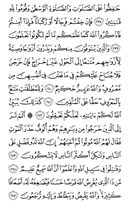 حَٰفِظُوا۟ عَلَى ٱلصَّلَوَٰتِ وَٱلصَّلَوٰةِ ٱلْوُسْطَىٰ وَقُومُوا۟ لِلَّهِ
قَٰنِتِينَ ٢٣٨ فَإِنْ خِفْتُمْ فَرِجَالًا أَوْ رُكْبَانًا فَإِذَآ أَمِنتُمْ
فَٱذْكُرُوا۟ ٱللَّهَ كَمَا عَلَّمَكُم مَّا لَمْ تَكُونُوا۟ تَعْلَمُونَ
٢٣٩ وَٱلَّذِينَ يُتَوَفَّوْنَ مِنكُمْ وَيَذَرُونَ أَزْوَٰجًا وَصِيَّةً
لِّأَزْوَٰجِهِم مَّتَٰعًا إِلَى ٱلْحَوْلِ غَيْرَ إِخْرَاجٍ فَإِنْ خَرَجْنَ
فَلَا جُنَاحَ عَلَيْكُمْ فِى مَا فَعَلْنَ فِىٓ أَنفُسِهِنَّ مِن
مَّعْرُوفٍ وَٱللَّهُ عَزِيزٌ حَكِيمٌ ٢٤٠ وَلِلْمُطَلَّقَٰتِ مَتَٰعٌۢ
بِٱلْمَعْرُوفِ حَقًّا عَلَى ٱلْمُتَّقِينَ ٢٤١ كَذَٰلِكَ يُبَيِّنُ
ٱللَّهُ لَكُمْ ءَايَٰتِهِۦ لَعَلَّكُمْ تَعْقِلُونَ ٢٤٢ أَلَمْ تَرَ إِلَى
ٱلَّذِينَ خَرَجُوا۟ مِن دِيَٰرِهِمْ وَهُمْ أُلُوفٌ حَذَرَ ٱلْمَوْتِ
فَقَالَ لَهُمُ ٱللَّهُ مُوتُوا۟ ثُمَّ أَحْيَٰهُمْ إِنَّ ٱللَّهَ لَذُو فَضْلٍ
عَلَى ٱلنَّاسِ وَلَٰكِنَّ أَكْثَرَ ٱلنَّاسِ لَا يَشْكُرُونَ ٢٤٣
وَقَٰتِلُوا۟ فِى سَبِيلِ ٱللَّهِ وَٱعْلَمُوٓا۟ أَنَّ ٱللَّهَ سَمِيعٌ عَلِيمٌ ٢٤٤
مَّن ذَا ٱلَّذِى يُقْرِضُ ٱللَّهَ قَرْضًا حَسَنًا فَيُضَٰعِفَهُۥ لَهُۥٓ
أَضْعَافًا كَثِيرَةً وَٱللَّهُ يَقْبِضُ وَيَبْصُۜطُ وَإِلَيْهِ تُرْجَعُونَ ٢٤٥